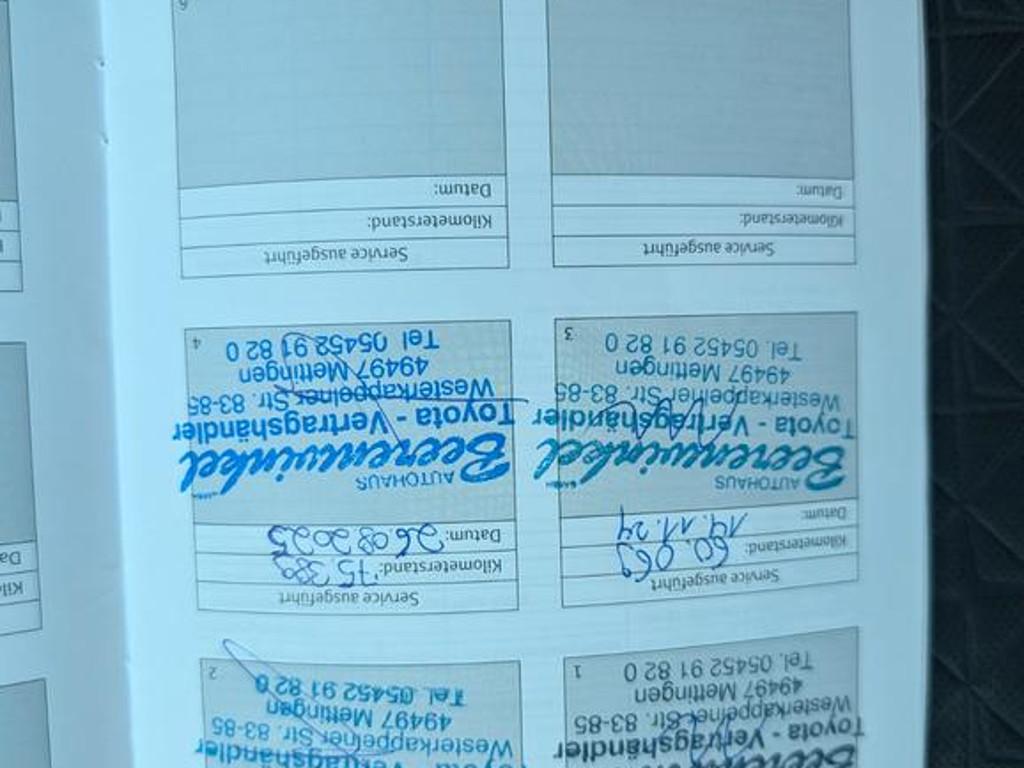 Toyota - Vertragshändler
Westerkappelner Str. 83-85
49497 Mettingen
Tel. 05452 91 82 0
1
Toyota - Vertragshändler
Westerkappelner Str. 83-85
49497 Mettingen
Tel. 05452 91 82 0
2
Service ausgeführt
Kilometerstand: 60.069
Datum: 14.11.24
AUTOHAUS
Beerenwinkel
Toyota - Vertragshändler
Westerkappelner Str. 83-85
49497 Mettingen
Tel. 05452 91 82 0
3
Service ausgeführt
Kilometerstand: 75.389
Datum: 26.08.2025
AUTOHAUS
Beerenwinkel
Toyota - Vertragshändler
Westerkappelner Str. 83-85
49497 Mettingen
Tel 05452 91 82 0
4
Service ausgeführt
Kilometerstand:
Datum:
Service ausgeführt
Kilometerstand:
Datum:
6